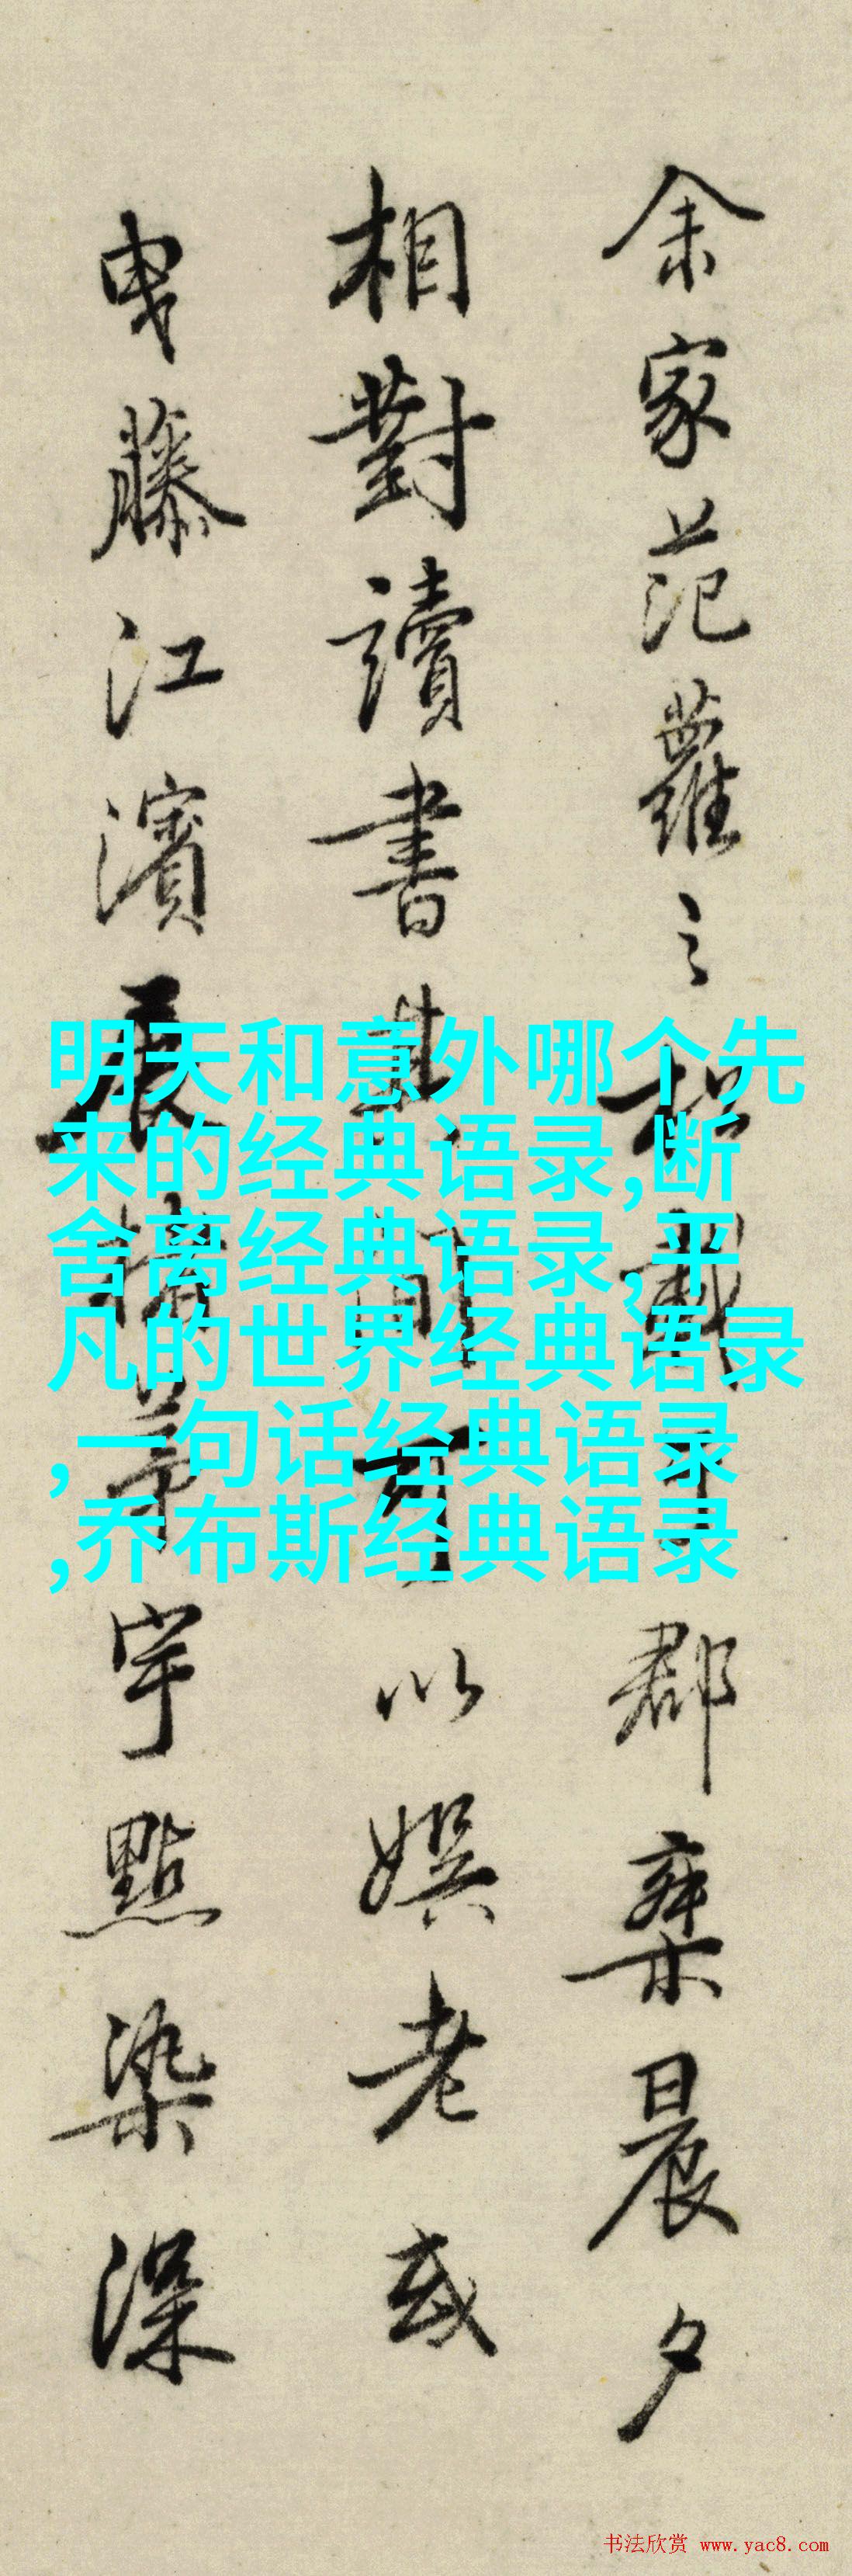 余家范蘿之載郡棄晨夕
相對讀書間可以娛老或
曳藤江濱展茅宇點染深
明天和意外哪个先
来的经典语录,断
舍离经典语录,平
凡的世界经典语录
,一句话经典语录
,乔布斯经典语录
书法欣赏 www.yac8.com